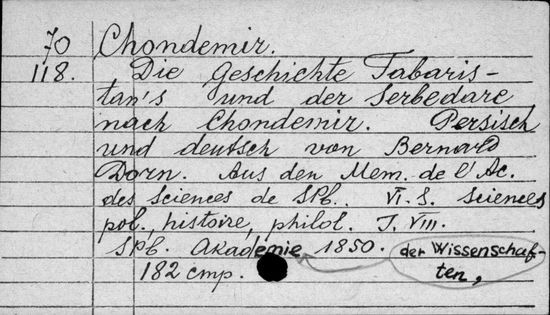 70 Chondemir.
118. Die Geschichte Tabaris-
tan's und der Serbedare
nach Chondemir. Persisch
und deutsch von Bernard
Dorn. Aus den Mem. de l'Ac.
des Sciences de SPb. VI. S. Sciences
pol., histoire, philol. T. VIII.
SPb. Akademie 1850. der Wissenschaf-
182 cmp. ten,